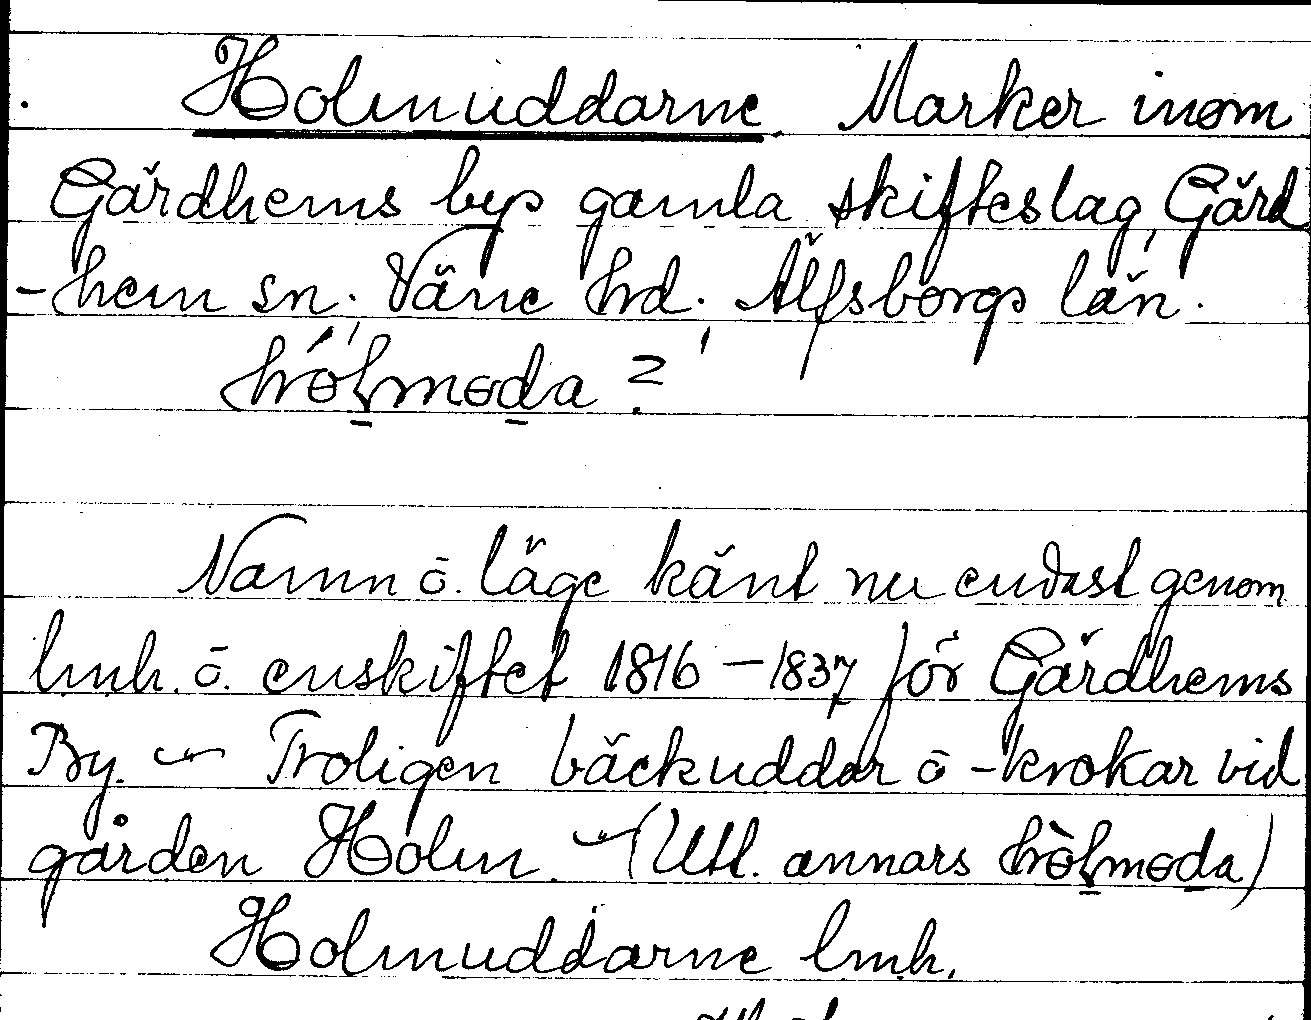 Holmuddarne. Marker inom
Gärdhems bys gamla skifteslag, Gärd
-hem sn. Väne hrd. Älfsborgs län.
hólmɵda ?
Namn ō. läge känt nu endast genom
lmh. ō. enskiftet 1816 – 1837 för Gärdhems
By. – Troligen bäckuddar ō -krokar vid
gården Holm. – (Utl. annars hòlmɵda)
Holmuddarne lmh.